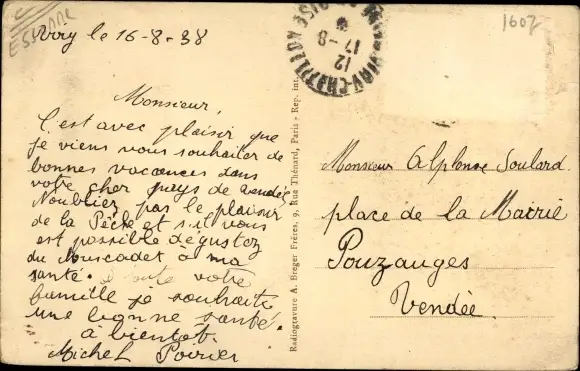 ESSONNE
Viry le 16-8-38
1607
VIRY-CHATILLON
SEINE ET OISE
12
17-8
38
Monsieur,
C'est avec plaisir que
je viens vous souhaiter de
bonnes vacances dans
votre cher pays de vendée,
N'oublier pas le plaisir
de la Pêche et s'il vous
est possible dégustez
du Muscadet à ma
santé. à toute votre
famille je souhaite
une bonne santé.
à bientôt.
Michel Poirier
Radiogravure A. Breger Frères, 9, Rue Thénard, Paris - Rep. int.
Monsieur Alphonse Soulard
place de la Mairie
Pouzauges
Vendée